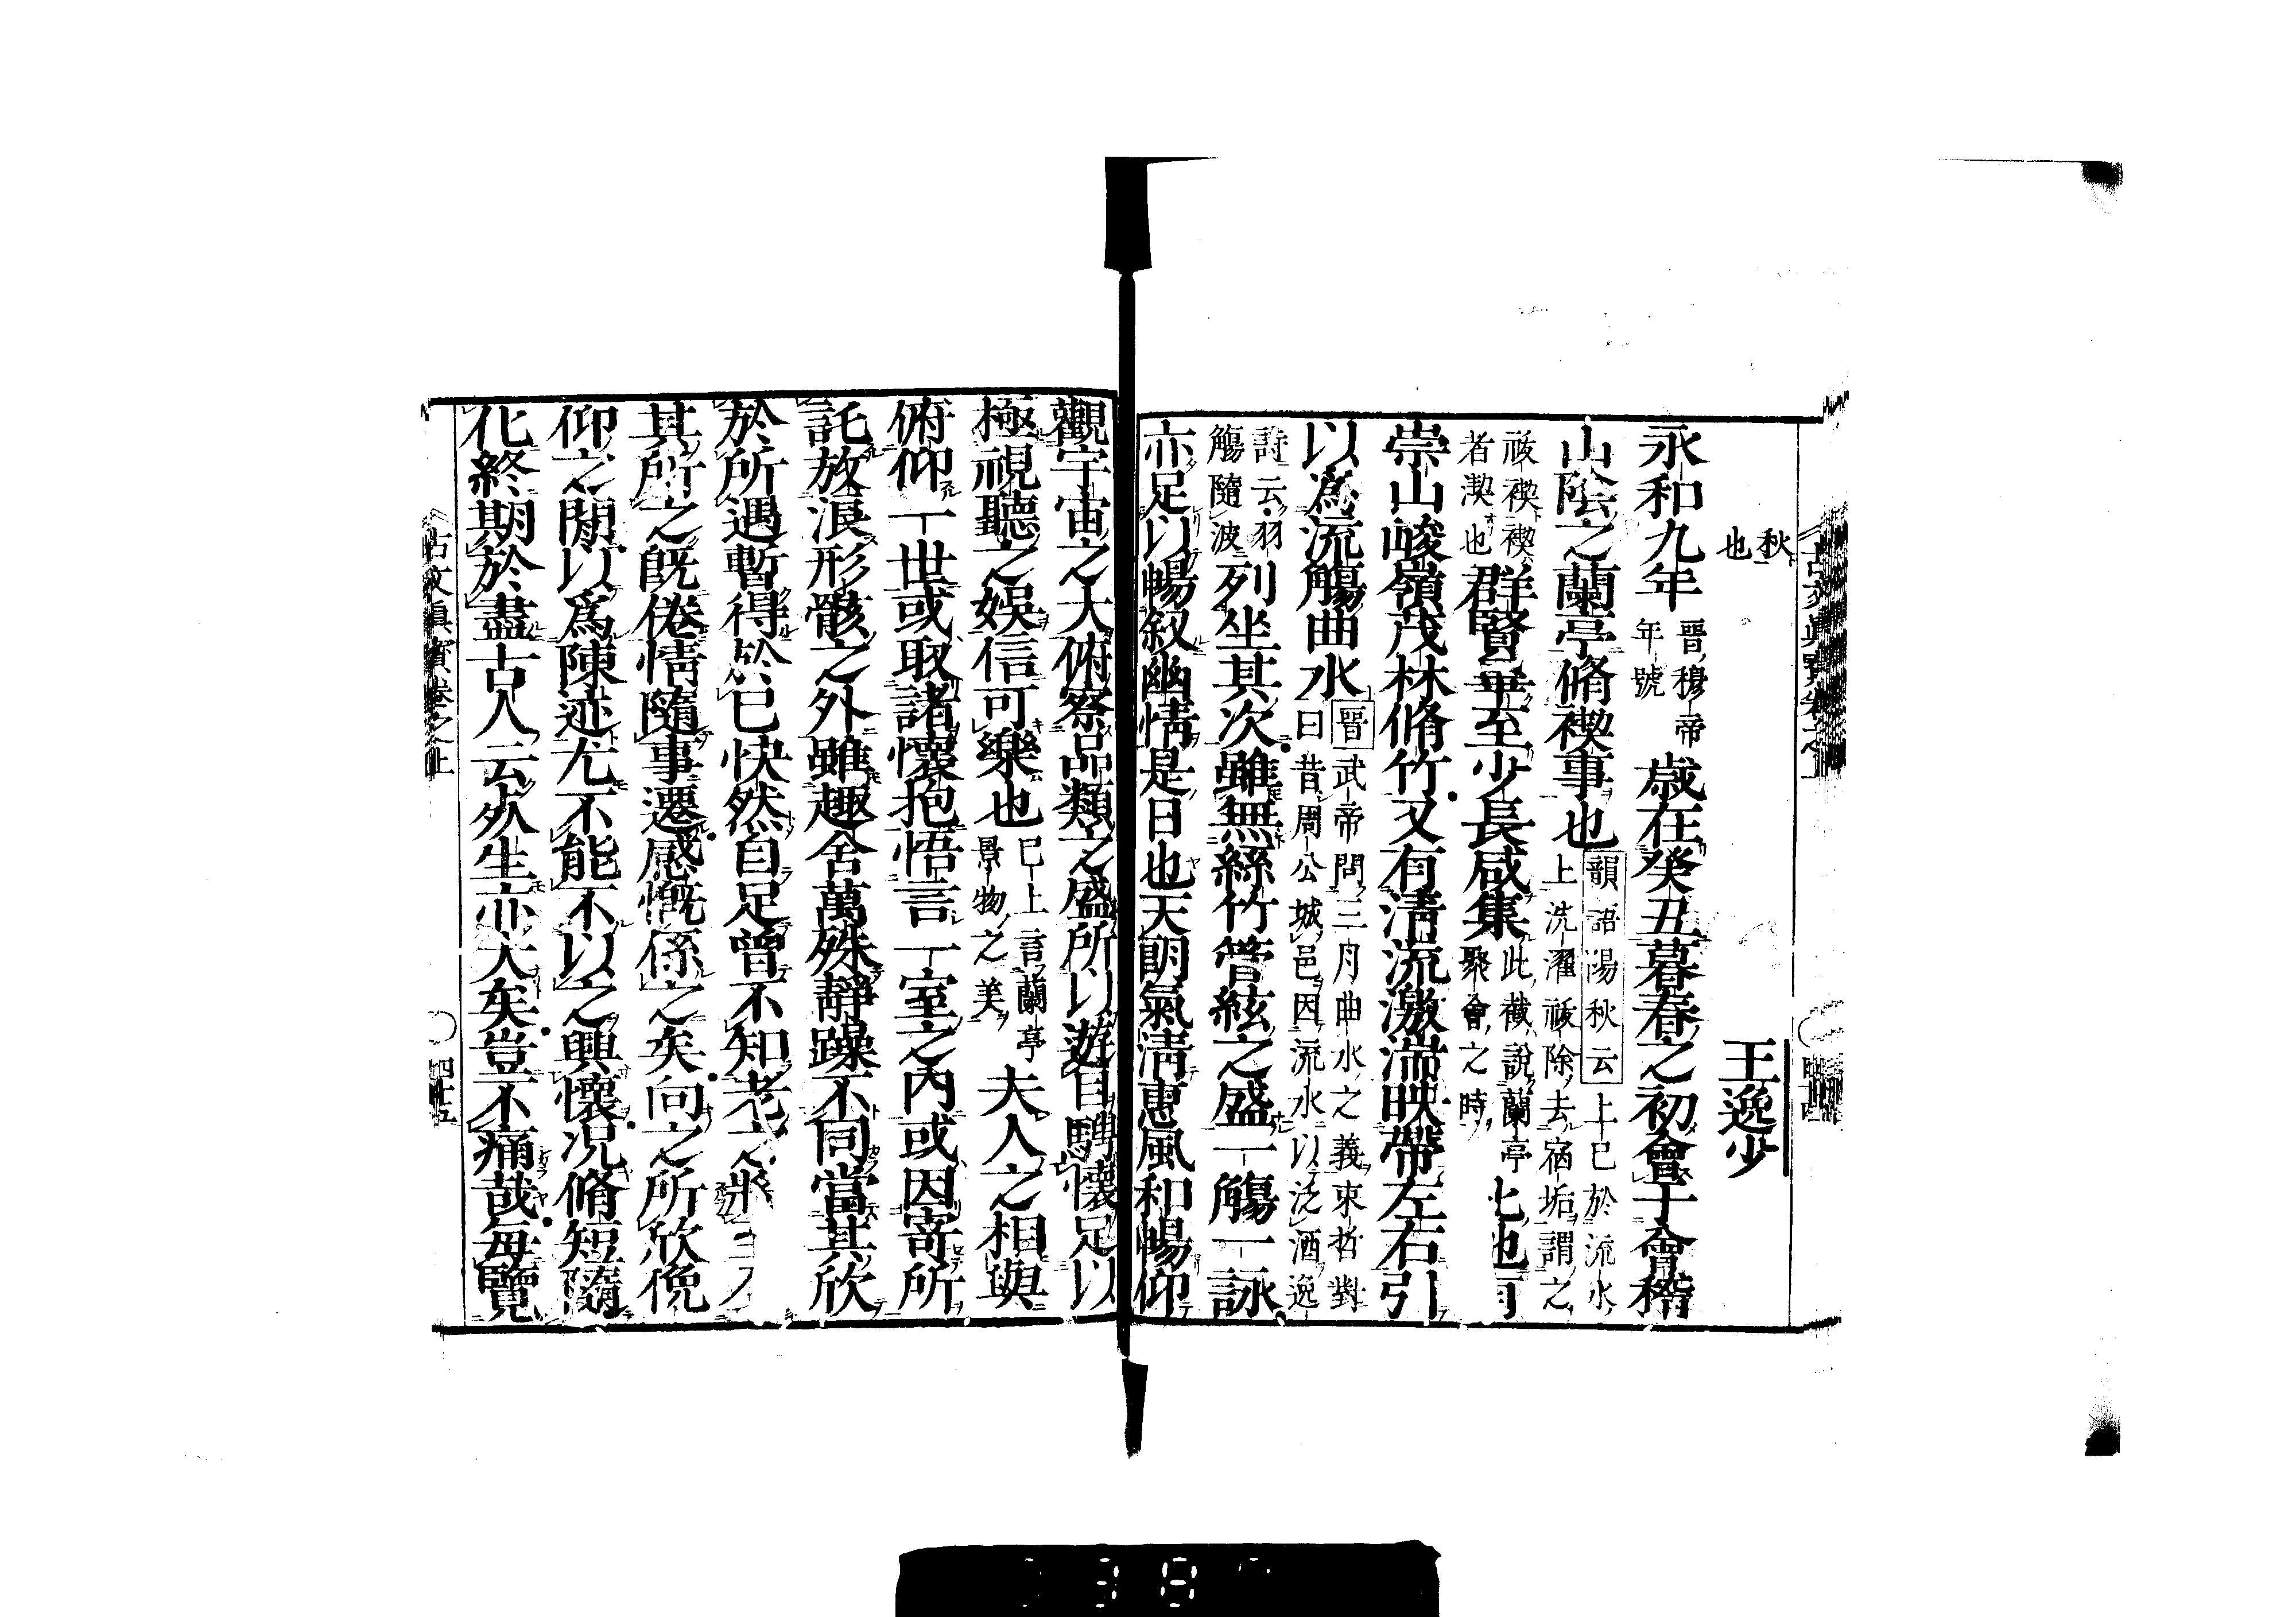 秋
也
王逸少
永和九年
晋穆帝
年號
歳在癸丑暮春之初會于會稽
山陰之蘭亭脩禊事也
韻語陽秋云上巳於流水
上洗濯祓除去宿垢謂之
祓禊禊
者潔也
群賢畢至少長咸集
此截說蘭亭
聚會之時
此地有
崇山峻嶺茂林脩竹又有清流激湍映帶左右引
以爲流觴曲水
晋武帝問三月曲水之義束晳對
曰昔周公城邑因流水以泛酒逸
詩云羽
觴隨波
列坐其次雖無絲竹管絃之盛一觴一詠
亦足以暢叙幽情是日也天朗氣清惠風和暢仰
觀宇宙之大俯察品類之盛所以遊目騁懷足以
極視聽之娯信可樂也
已上言蘭亭
景物之美
夫人之相與
俯仰一世或取諸懷抱悟言一室之內或因寄所
託放浪形骸之外雖趣舍萬殊靜躁不同當其欣
於所遇暫得於已快然自足曾不知老之
其所之旣倦情隨事遷感慨係之矣向之所欣俛
仰之閒以爲陳迹尤不能不以之興懷况脩短隨
化終期於盡古人云死生亦大矣豈不痛哉每覽
古文眞寳卷之上
四十五